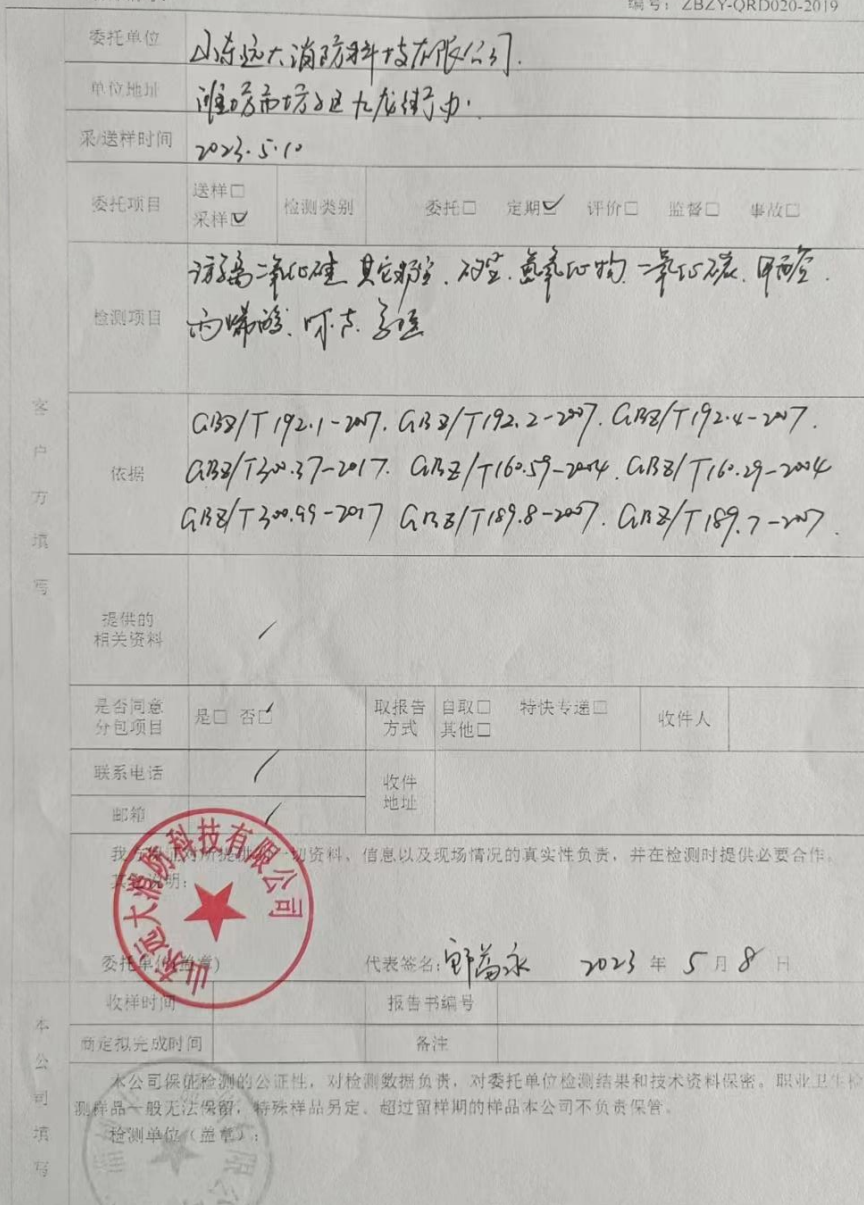 编号：ZBZY-QRD020-2019
委托单位 山东远大消防科技有限公司.
单位地址 潍坊市坊子区九龙街办.
采/送样时间 2023.5.10
委托项目 送样□ 采样☑ 检测类别 委托□ 定期☑ 评价□ 监督□ 事故□
检测项目 游离二氧化硅 其它粉尘、矽尘、氮氧化物、二氧化碳、甲醛、
丙烯酸、噪声、高温
依据 GBZ/T192.1-2007. GBZ/T192.2-2007. GBZ/T192.4-2007.
GBZ/T300.37-2017. GBZ/T160.59-2004. GBZ/T160.29-2004
GBZ/T300.99-2017 GBZ/T189.8-2007. GBZ/T189.7-2007.
客户方填写
提供的
相关资料 /
是否同意
分包项目 是□ 否☑ 取报告
方式 自取□ 特快专递□
其他□ 收件人
联系电话 / 收件
地址
邮箱 /
我方保证对所提供的一切资料、信息以及现场情况的真实性负责，并在检测时提供必要合作。
其他说明：
山东远大消防科技有限公司
委托单位(盖章) 代表签名： 2023 年 5 月 8 日
收样时间 报告书编号
商定拟完成时间 备注
本公司填写
本公司保证检测的公证性，对检测数据负责，对委托单位检测结果和技术资料保密。职业卫生检
测样品一般无法保留，特殊样品另定，超过留样期的样品本公司不负责保管。
检测单位（盖章）：